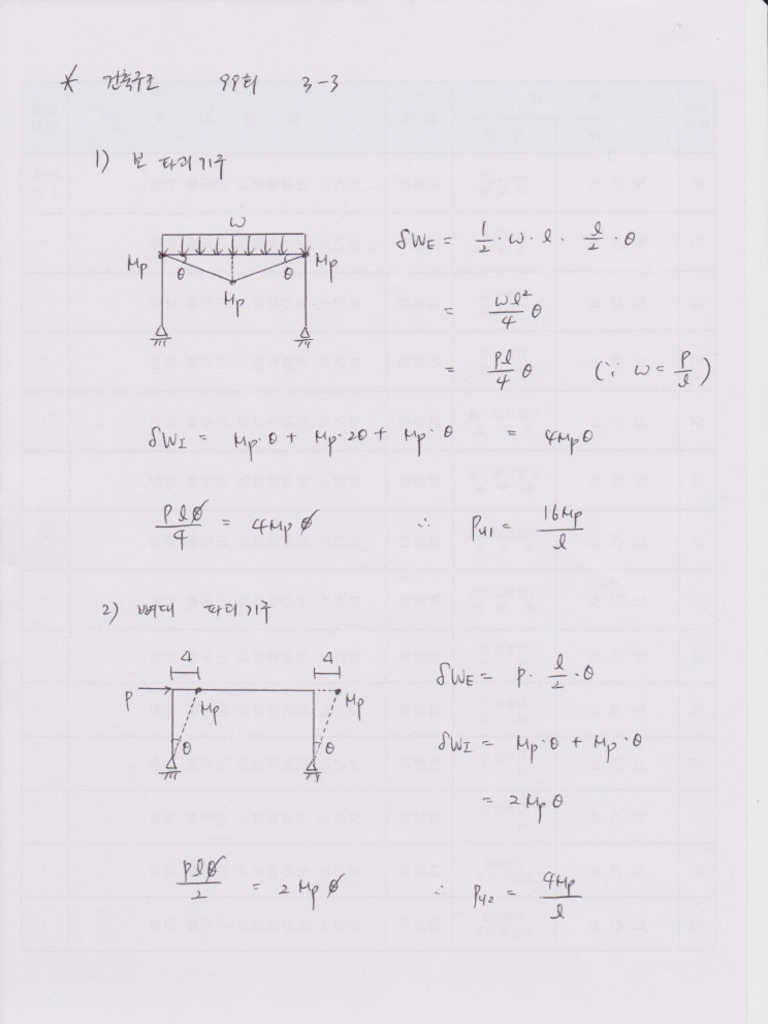 * 건축구조 99회 3-3
1) 보 파괴기구
w
Mp θ θ Mp
Mp
δWE = 1/2 · w · l · l/2 · θ
= wl²/4 θ
= Pl/4 θ (∵ w = P/l)
δWI = Mp·θ + Mp·2θ + Mp·θ = 4Mpθ
Plθ/4 = 4Mpθ ∴ Pu1 = 16Mp/l
2) 뼈대 파괴기구
Δ Δ
P Mp Mp
θ θ
δWE = P · l/2 · θ
δWI = Mp·θ + Mp·θ
= 2Mpθ
Plθ/2 = 2Mpθ ∴ Pu2 = 4Mp/l